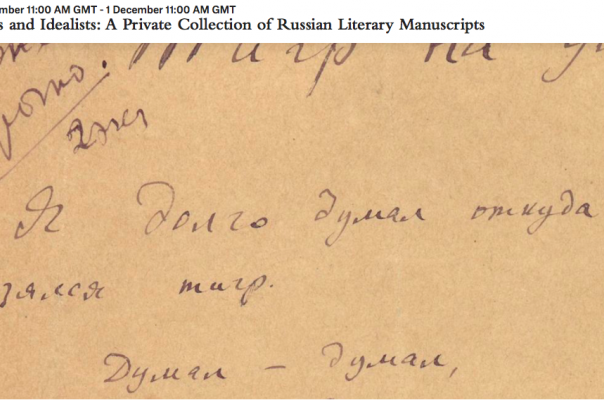 mber 11:00 AM GMT - 1 December 11:00 AM GMT
s and Idealists: A Private Collection of Russian Literary Manuscripts
Тигр на
Я долго думал откуда
зялся тигр.
Думал – думал,